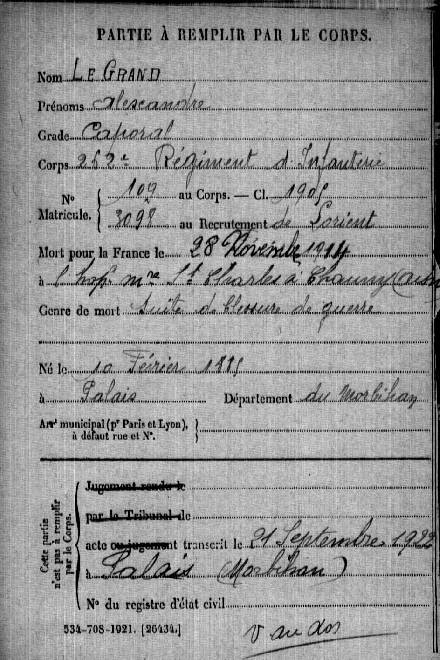 PARTIE À REMPLIR PAR LE CORPS.
Nom LE GRAND
Prénoms Alexandre
Grade Caporal
Corps 262e Régiment d'Infanterie
N° Matricule. { 109 au Corps. — Cl. 1905
3098 au Recrutement de Lorient
Mort pour la France le 28 Novembre 1914
à l'hop. mre St Charles à Chauny (Aisne
Genre de mort Suite de blessure de guerre
Né le 10 Février 1885
à Palais Département du Morbihan
Arrt municipal (pr Paris et Lyon),
à défaut rue et N°.
Cette partie
n'est pas à remplir
par le Corps.
Jugement rendu le
par le Tribunal de
acte ou jugement transcrit le 21 Septembre 1922
à Palais (Morbihan)
N° du registre d'état civil
534-708-1921. [26434.]
V au dos